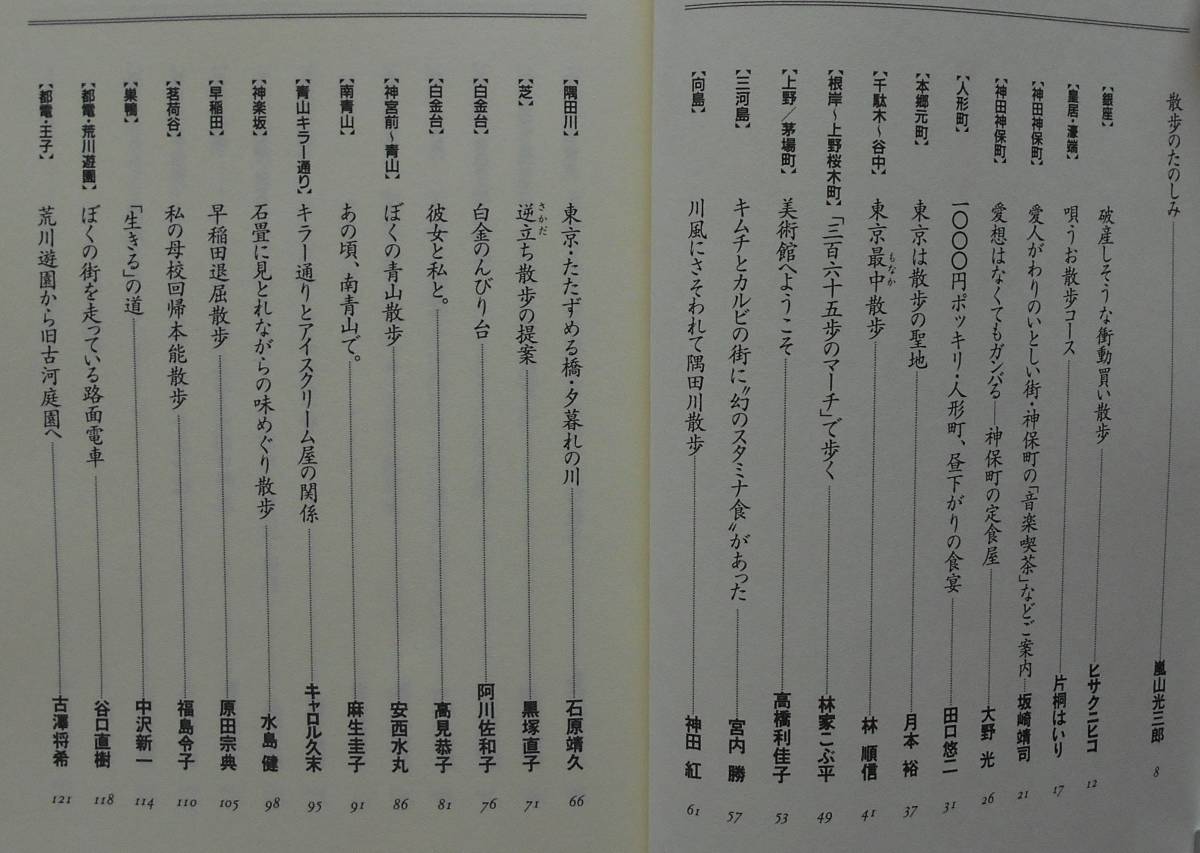 散歩のたのしみ 嵐山光三郎 8
【銀座】 破産しそうな衝動買い散歩 ヒサクニヒコ 12
【皇居・濠端】 唄うお散歩コース 片桐はいり 17
【神田神保町】 愛人がわりのいとしい街・神保町の「音楽喫茶」などご案内 坂崎靖司 21
【神田神保町】 愛想はなくてもガンバる―神保町の定食屋 大野 光 26
【人形町】 一〇〇〇円ポッキリ・人形町、昼下がりの食宴 田口悠二 31
【本郷元町】 東京は散歩の聖地 月本 裕 37
【千駄木〜谷中】 東京最中散歩 もなか 林 順信 41
【根岸〜上野桜木町】 「三百六十五歩のマーチ」で歩く 林家こぶ平 49
【上野／茅場町】 美術館へようこそ 高橋利佳子 53
【三河島】 キムチとカルビの街に〝幻のスタミナ食〟があった 宮内 勝 57
【向島】 川風にさそわれて隅田川散歩 神田 紅 61
【隅田川】 東京・たたずめる橋・夕暮れの川 石原靖久 66
【芝】 逆立ち散歩の提案 さかだ 黒塚直子 71
【白金台】 白金のんびり台 阿川佐和子 76
【白金台】 彼女と私と。 高見恭子 81
【神宮前〜青山】 ぼくの青山散歩 安西水丸 86
【南青山】 あの頃、南青山で。 麻生圭子 91
【青山キラー通り】 キラー通りとアイスクリーム屋の関係 キャロル久末 95
【神楽坂】 石畳に見とれながらの味めぐり散歩 水島 健 98
【早稲田】 早稲田退屈散歩 原田宗典 105
【茗荷谷】 私の母校回帰本能散歩 福島令子 110
【巣鴨】 「生きる」の道 中沢新一 114
【都電・荒川遊園】 ぼくの街を走っている路面電車 谷口直樹 118
【都電・王子】 荒川遊園から旧古河庭園へ 古澤将希 121